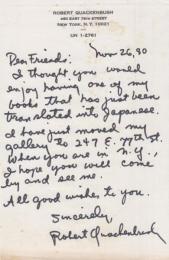 ROBERT QUACKENBUSH
460 EAST 79TH STREET
NEW YORK, N.Y. 10021
UN 1-2761
Nov 26, 90
Dear Friends:
I thought you would
enjoy having one of my
books that has just been
translated into Japanese.
I have just moved my
gallery to 247 E. 79th St.
When you are in N.Y.,
I hope you will come
by and see me.
All good wishes to you.
Sincerely,
Robert Quackenbush